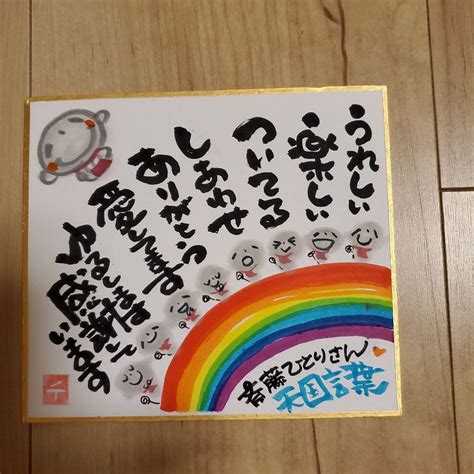 うれしい
楽しい
ついてる
しあわせ
ありがとう
愛してます
ゆるします
感謝しています
斉藤ひとりさん
天国言葉
千